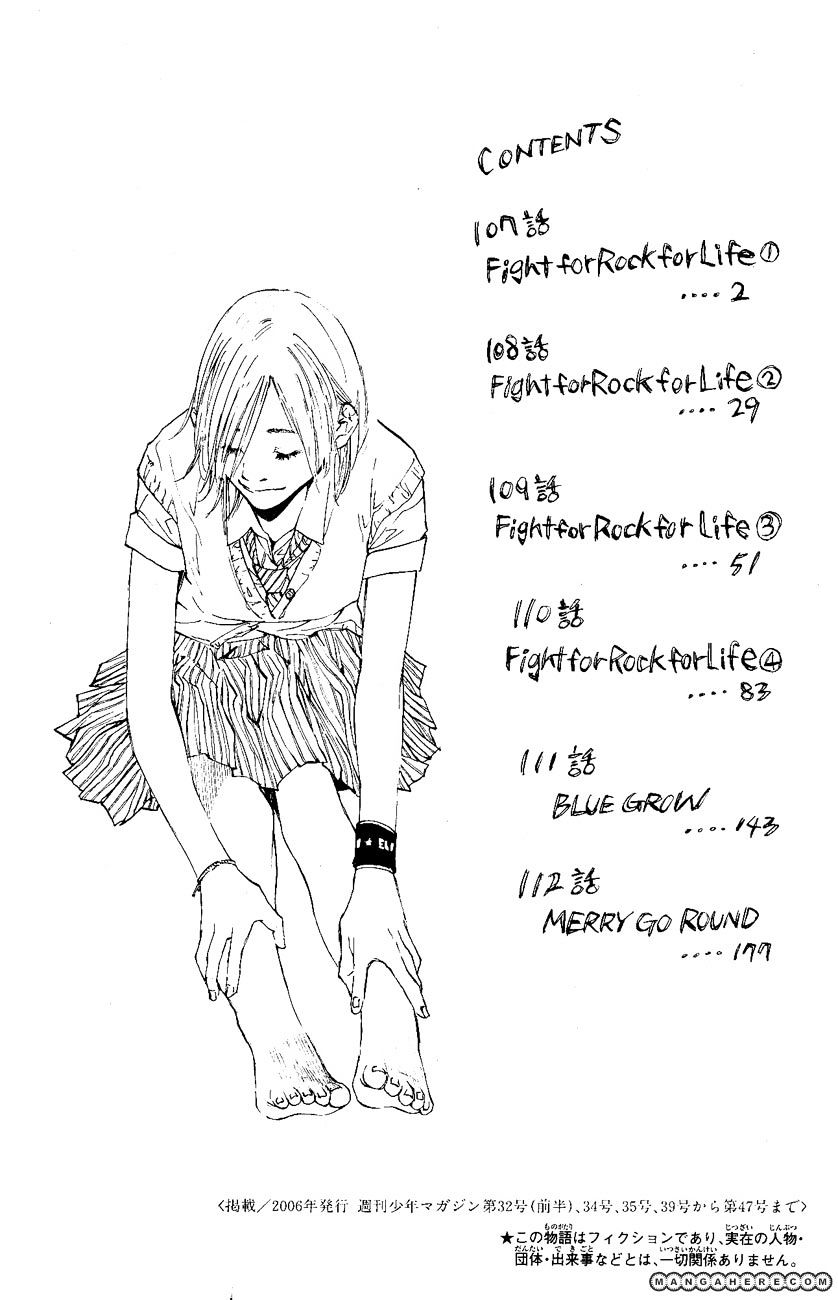 CONTENTS
107話
Fight for Rock for Life①
....2
108話
Fight for Rock for Life②
....29
109話
Fight for Rock for Life③
....51
110話
Fight for Rock for Life④
....83
111話
BLUE GROW
....143
112話
MERRY GO ROUND
....177
★ EL
〈掲載／2006年発行 週刊少年マガジン第32号(前半)、34号、35号、39号から第47号まで〉
ものがたり じつざい じんぶつ
★この物語はフィクションであり、実在の人物・
だんたい できごと いっさいかんけい
団体・出来事などとは、一切関係ありません。
MANGAHERE.COM